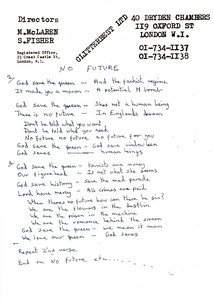 Directors
M.McLAREN
S.FISHER
Registered Office,
23 Great Castle St,
London, W.1.
GLITTERBEST LTD
40 DRYDEN CHAMBERS
119 OXFORD ST
LONDON W.1.
01-734-1137
01-734-1138
NO FUTURE
God save the queen - And the fascist regime
It made you a moron - A potential H bomb
God save the queen - Shes not a human being
There is no future - In Englands dream
Dont be told what you want
Dont be told what you need
No future no future no future for you
God save the queen - God save
God save - human beings
God save the queen - tourists are money
Our figurehead - Is not what she seems
God save history - save the mad parade
Lord have mercy - All crimes are paid
When theres no future how can there be sin?
We are the flowers in the dustbin
We are the poison in the machine
We are the romance behind the screen
God save the queen - we mean it man
We love our queen - God saves
Repeat 2nd verse
End on No future etc